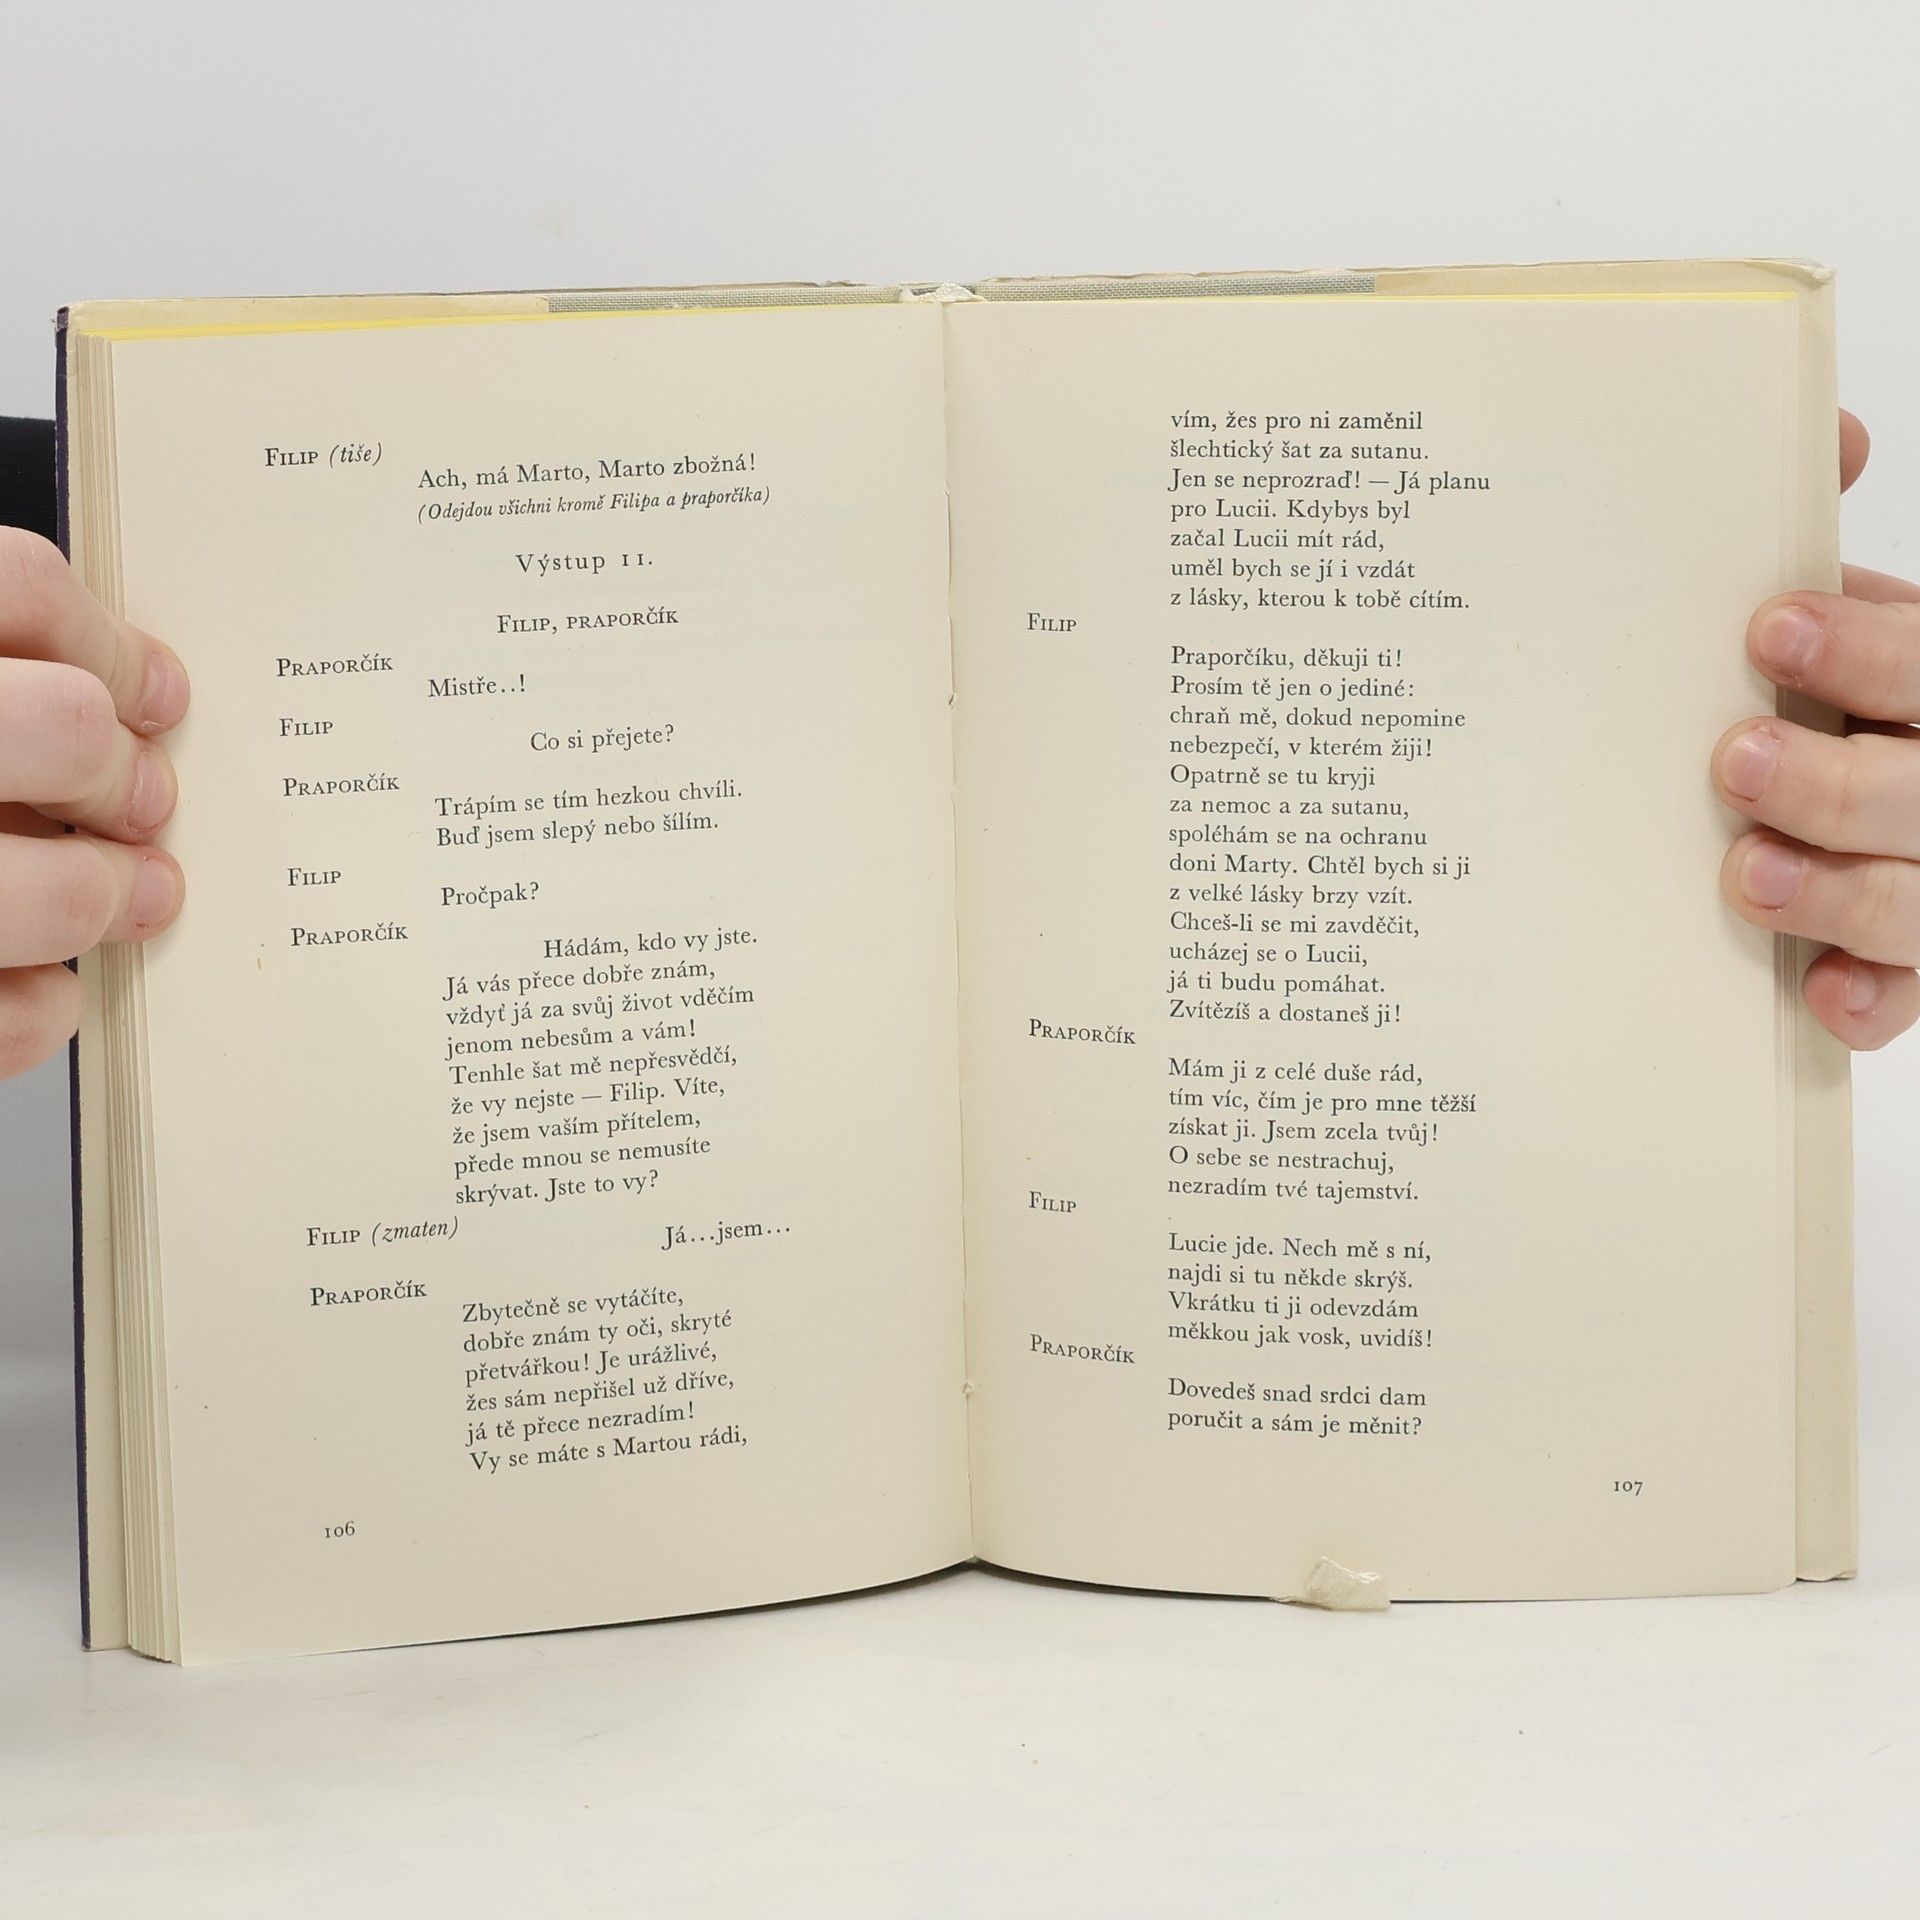 FILIP (tiše)
Ach, má Marto, Marto zbožná!
(Odejdou všichni kromě Filipa a praporčíka)
Výstup 11.
FILIP, PRAPORČÍK
PRAPORČÍK
Mistře..!
FILIP
Co si přejete?
PRAPORČÍK
Trápím se tím hezkou chvíli.
Buď jsem slepý nebo šílím.
FILIP
Pročpak?
PRAPORČÍK
Hádám, kdo vy jste.
Já vás přece dobře znám,
vždyť já za svůj život vděčím
jenom nebesům a vám!
Tenhle šat mě nepřesvědčí,
že vy nejste — Filip. Víte,
že jsem vaším přítelem,
přede mnou se nemusíte
skrývat. Jste to vy?
FILIP (zmaten)
Já...jsem...
PRAPORČÍK
Zbytečně se vytáčíte,
dobře znám ty oči, skryté
přetvářkou! Je urážlivé,
žes sám nepřišel už dříve,
já tě přece nezradím!
Vy se máte s Martou rádi,
106
vím, žes pro ni zaměnil
šlechtický šat za sutanu.
Jen se neprozraď! — Já planu
pro Lucii. Kdybys byl
začal Lucii mít rád,
uměl bych se jí i vzdát
z lásky, kterou k tobě cítím.
FILIP
Praporčíku, děkuji ti!
Prosím tě jen o jediné:
chraň mě, dokud nepomine
nebezpečí, v kterém žiji!
Opatrně se tu kryji
za nemoc a za sutanu,
spoléhám se na ochranu
doni Marty. Chtěl bych si ji
z velké lásky brzy vzít.
Chceš-li se mi zavděčit,
ucházej se o Lucii,
já ti budu pomáhat.
Zvítězíš a dostaneš ji!
PRAPORČÍK
Mám ji z celé duše rád,
tím víc, čím je pro mne těžší
získat ji. Jsem zcela tvůj!
O sebe se nestrachuj,
nezradím tvé tajemství.
FILIP
Lucie jde. Nech mě s ní,
najdi si tu někde skrýš.
Vkrátku ti ji odevzdám
měkkou jak vosk, uvidíš!
PRAPORČÍK
Dovedeš snad srdci dam
poručit a sám je měnit?
107